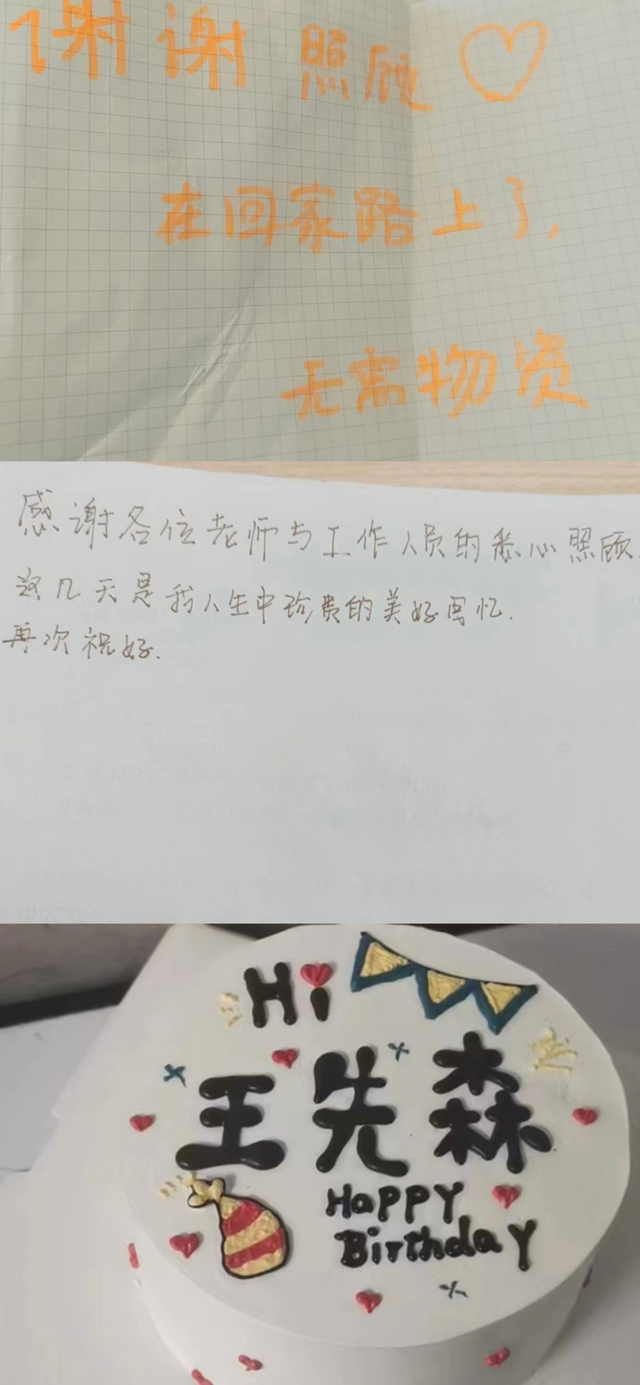 谢谢照顾♡
在回家路上了,
无需物资
感谢各位老师与工作人员的悉心照顾.
这几天是我人生中珍贵的美好回忆.
再次祝好.
Hi
王先森
HAPPY
BirthdaY